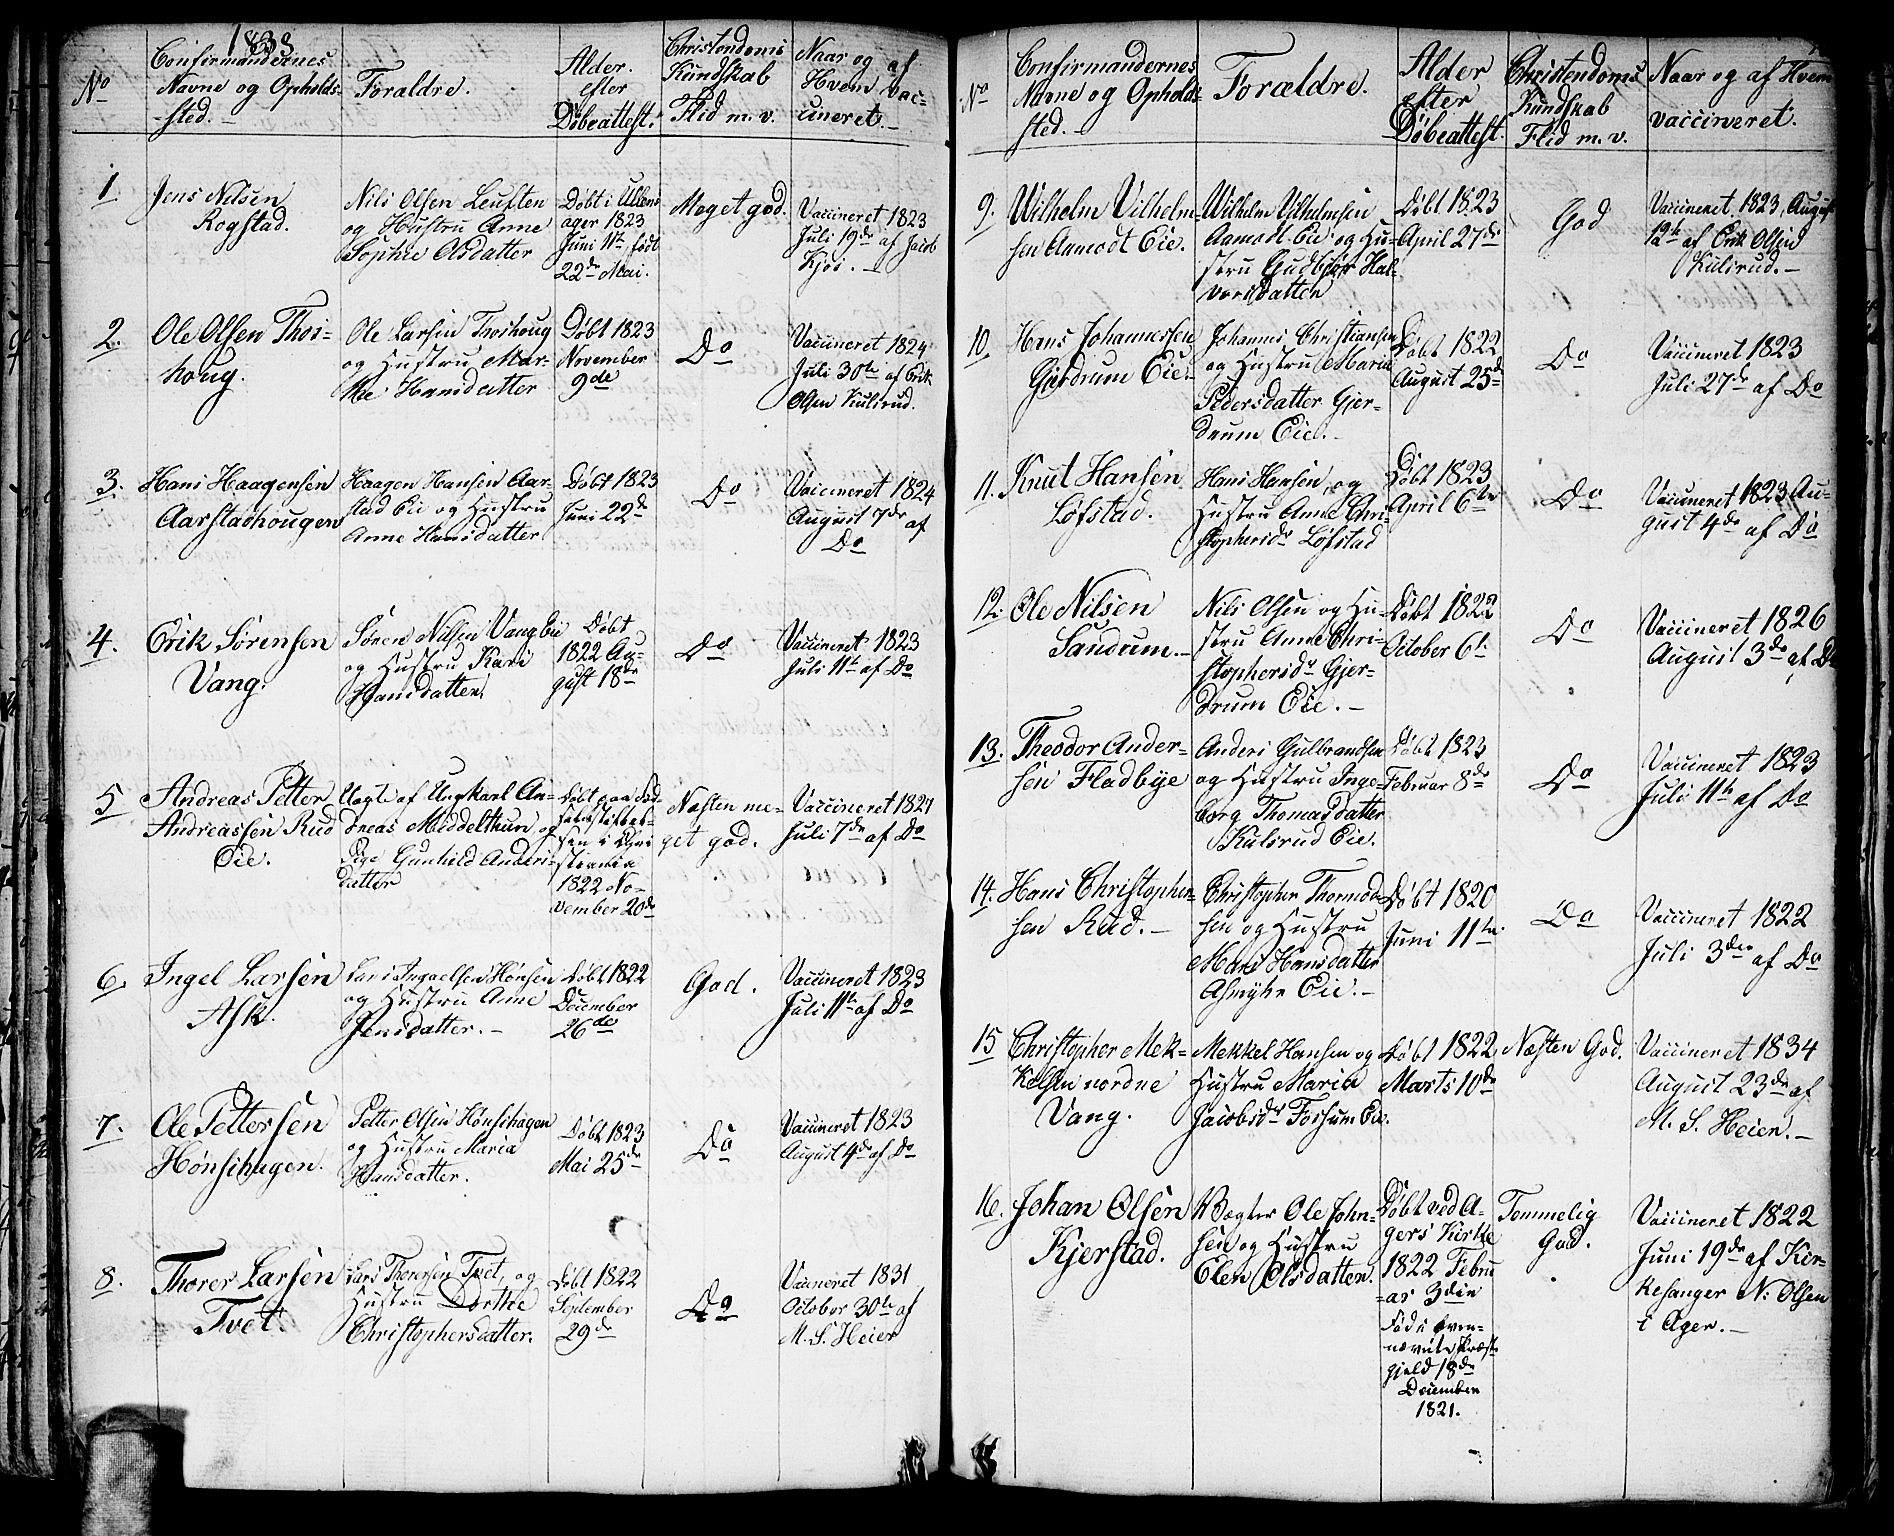 1838
No
Confirmandernes
Navne og Opholds-
sted.
Forældre.
Alder
efter
Døbeattest.
Christendoms
Kundskab
Flid m. v.
Naar og af
Hvem vac-
cineret.
1
Jens Nilsen
Rogstad.
Nils Olsen
og Hustru Anne
Sophie Olsdatter
Døbt i Ullens
ager 1823
Juni 11te, født
22de Mai.
Meget god.
Vaccineret 1823
Juli 19de af Jacob
2.
Ole Olsen Thoi-
houg.
Ole Larsen Thoihoug
og Hustru Mar-
the Hansdatter
Døbt 1823
November
9de
Do
Vaccineret 1824
Juli 30te af Erik
Olsen Kulsrud.
3.
Hans Haagensen
Aarstadhougen
Haagen Hansen Aar-
stad Eie og Hustru
Anne Hansdatter
Døbt 1823
Juni 22de
Do
Vaccineret 1824
August 7de af
Do
4.
Erik Sørensen
Vang.
Sören Nilsen Vang Eie
og Hustru Kari
Hansdatter.
Døbt
1822 Au-
gust 18de
Do
Vaccineret 1823
Juli 11te af Do
5
Andreas Petter
Andreassen Rud
Eie.
Uægte af Ungkarl An-
dreas Middelthun, og
Pige Gunhild Anders-
datter
Døbt paa Fød-
selsstiftel-
sen i Chri
stiania
1822 No-
vember 20de
Næsten me-
get god.
Vaccineret 1827
Juli 7de af Do
6.
Ingel Larsen
Ask.
Lars Ingelsen Hønsen
og Hustru Anne
Jensdatter.
Døbt 1822
December
26de
God.
Vaccineret 1823
Juli 11te af Do
7.
Ole Pettersen
Hønsihagen.
Petter Olsen Hønsihagen
og Hustru Maria
Hansdatter.
Døbt 1823
Mai 25de
Do
Vaccineret 1823
August 4de af Do
8.
Thorer Larsen
Tvet.
Lars Thorersen Tvet, og
Hustru Dorthe
Christophersdatter.
Døbt 1822
September
29de
Do
Vaccineret 1831
October 30te af
M. S. Heier
No
Confirmandernes
Navne og Opholds-
sted.
Forældre.
Alder
efter
Døbeattest.
Christendoms
Kundskab
Flid m. v.
Naar og af Hvem
vaccineret.
9.
Wilhelm Vilhelm-
sen Aamodt Eie.
Wilhelm Vilhelmsen
Aamodt Eie og Hu-
stru Gudbjør Hal-
vorsdatter
Døbt 1823
April 27de
God
Vaccineret 1823, August
12te af Erik Olsen
Kulsrud.
10
Hans Johannessen
Gjerdrum Eie.
Johannes Christiansen
og Hustru Maria
Pedersdatter Gjer-
drum Eie.
Døbt 1822
August 25de
Do
Vaccineret 1823
Juli 27de af Do
11.
Knut Hansen
Løfstad.
Hans Hansen, og
Hustru Anne Chri-
stophersdr Løfstad
Døbt 1823
April 6te
Do
Vaccineret 1823 Au-
gust 4de af Do
12.
Ole Nilsen
Sandum.
Nils Olsen og Hu-
stru Anne Chri-
stophersdr Gjer-
drum Eie.
Døbt 1822
October 6te
Do
Vaccineret 1826
August 3de af Do
13.
Theodor Ander-
sen Fladbye
Anders Gulbrandsen
og Hustru Inge-
borg Thomasdatter
Kulsrud Eie.
Døbt 1823
Februar 8de
Do
Vaccineret 1823
Juli 11te af Do
14.
Hans Christopher-
sen Rud.
Christopher
sen og Hustru
Mari Hansdatter
Asmyhr Eie.
Døbt 1820
Juni 11te
Do
Vaccineret 1822
Juli 3die af Do
15
Christopher Mek-
kelsen nordre
Vang.
Mekkel Hansen og
Hustru Maria
Jacobsdr Forsum Eie.
Døbt 1822
Marts 10de
Næsten God.
Vaccineret 1834
August 23de af
M. S. Heier.
16.
Johan Olsen
Kjerstad.
Vægter Ole John-
sen og Hustru
Elen Olsdatter.
Døbt ved A-
gers Kirke
1822 Febru
-ar 3die
Fød i oven-
nævnte Præste
gjeld 18de
December
1821.
Temmelig
God.
Vaccineret 1822
Juni 19de af Kir-
kesanger N. Olsen
i Ager.